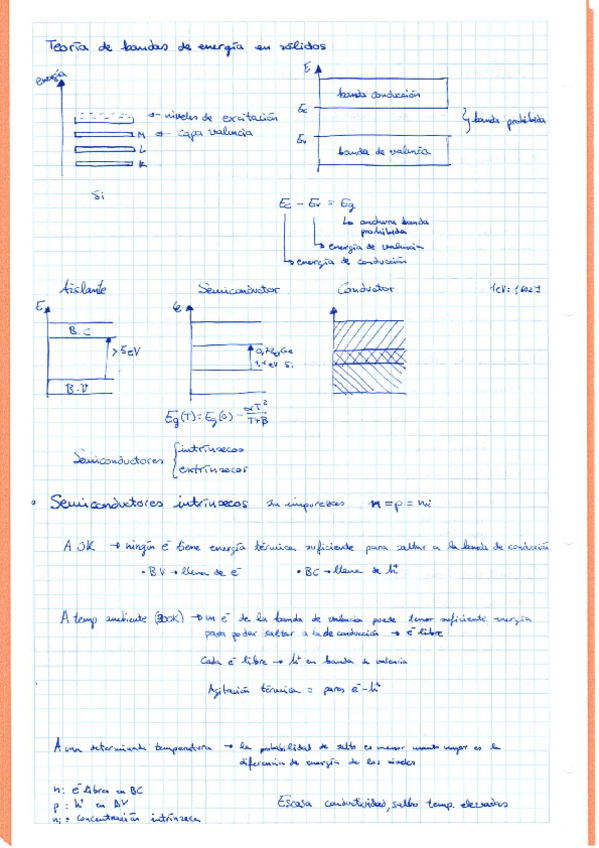 Teoría de bandas de energía en sólidos
energía
niveles de excitación
M capa valencia
L
K
Si
E
banda conducción
Ec
} banda prohibida
Ev
banda de valencia
Ec - Ev = Eg
anchura banda
prohibida
energía de valencia
energía de conducción
Aislante
Semiconductor
Conductor
E
B.C
>5eV
B.V
Ge
1,1 eV Si
Eg(T) = Eg(0) - αT²/T+β
Semiconductores { intrínsecos
extrínsecos
• Semiconductores intrínsecos sin impurezas n = p = ni
A 0K → ningún e⁻ tiene energía térmica suficiente para saltar a la banda de conducción
• BV → llena de e⁻ • BC → llena de h⁺
A temp ambiente (300K) → un e⁻ de la banda de valencia puede tener suficiente energía
para poder saltar a la de conducción → e⁻ libre
Cada e⁻ libre → h⁺ en banda de valencia
Agitación térmica = pares e⁻-h⁺
A una determinada temperatura → la probabilidad de salto es menor cuanto mayor es la
diferencia de energía de los niveles
n: e⁻ libres en BC
p: h⁺ en BV
ni: concentración intrínseca
Escasa conductividad, salvo temp. elevadas